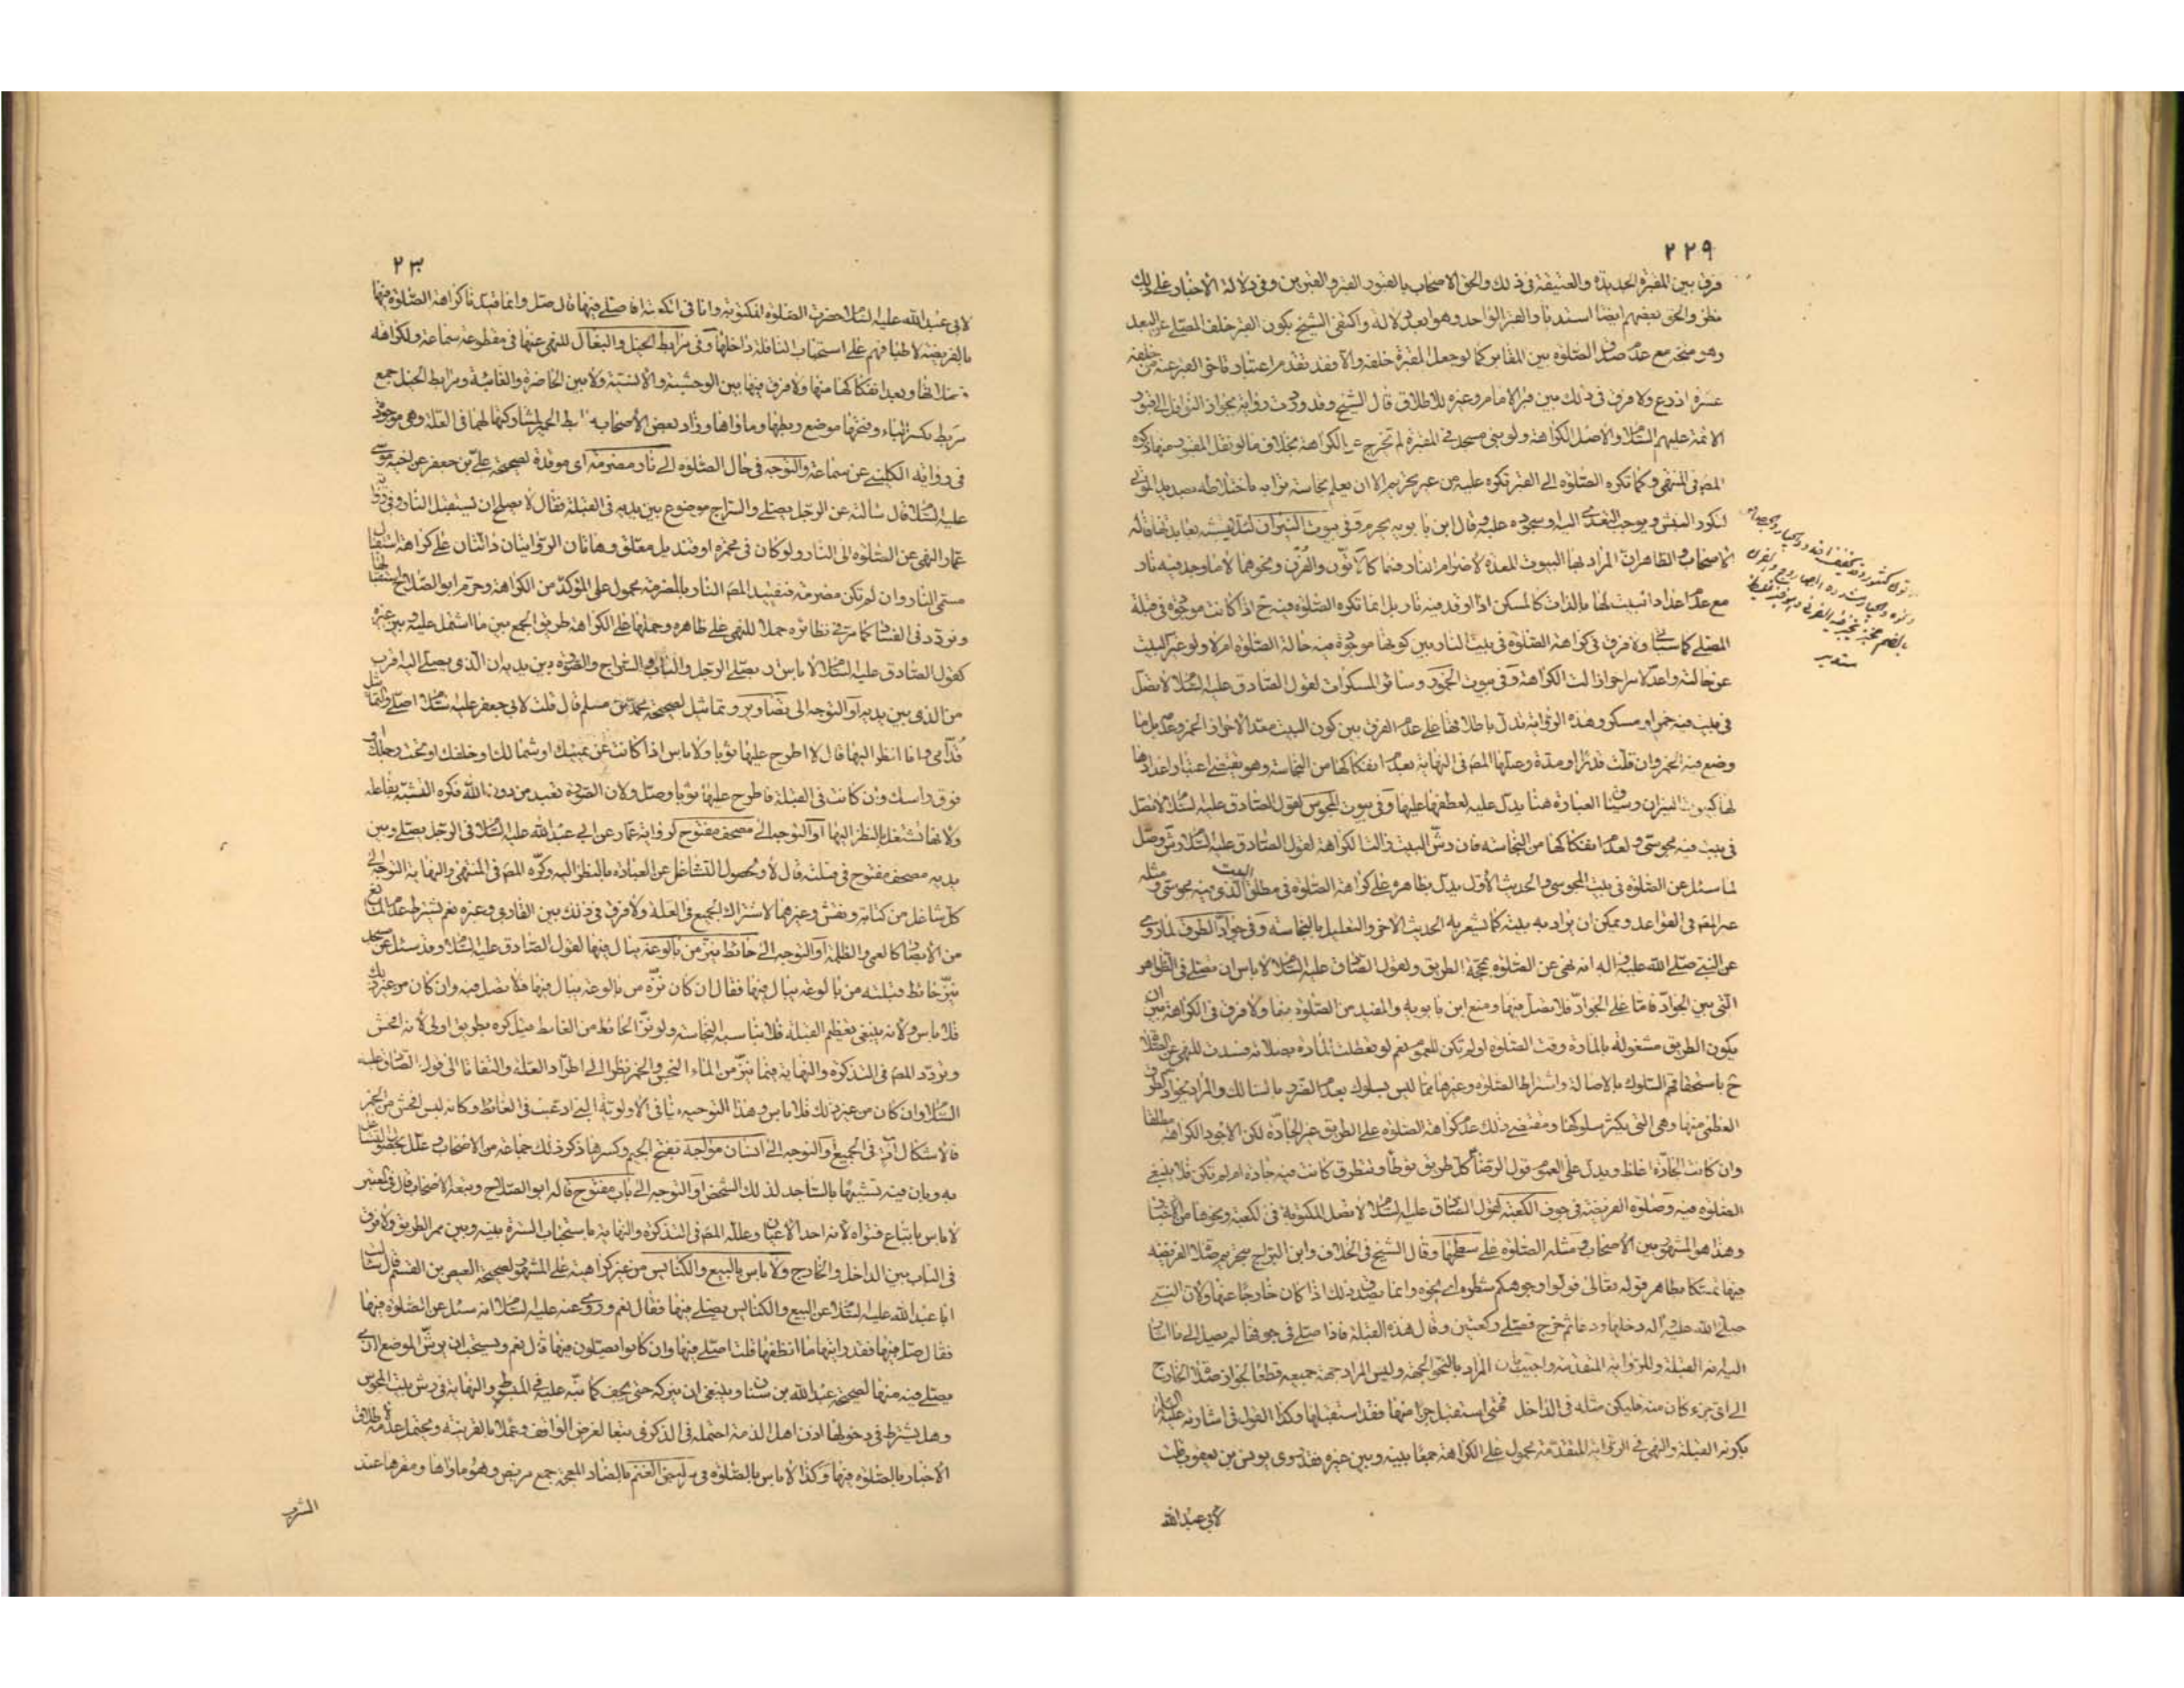 ٢٢٩
فرق بين المقبرة الجديدة والعتيقة في ذلك والحق الاصحاب بالقبور القبر والقبرين وفي دلالة الأخبار على ذلك
نظر والحق بعضهم ايضا استناد القبر الواحد وهو ابعد دلالة واكتفى الشيخ بكون القبر خلف المصلي عن البعد
وهو متجه مع عدم صدق الصلوة بين المقابر كما لو جعل المقبرة خلفه والا فقد تقدم اعتبار تأخر القبر عنه من خلفه
عشرة اذرع ولا فرق في ذلك بين قبر الامام وغيره للاطلاق قال الشيخ وقد وردت رواية بجواز النوافل الى قبور
الائمة عليهم السلام والاصل الكراهة ولو بنى مسجد في المقبرة لم تخرج عن الكراهة بخلاف ما لو نقل القبور منها ذكره
المص في المنتهى وكما تكره الصلوة الى القبر تكره عليه من غير تحريم الا ان يعلم نجاسة ترابه باختلاطه بصديد الموتى
لتكرر النبش ويوجب التعدي اليه وسجوده عليه قال ابن بابويه يحرم وفي بيوت النيران لئلا يتشبه بعابديها قاله
الاصحاب والظاهر ان المراد بها البيوت المعدة لاضرام النار فيها كالاتون والفرن ونحوهما لا ما وجد فيه نار
مع عدم اعداد البيت لها بالذات كالمسكن اذا اوقد فيه نار بل انما تكره الصلوة فيه ح اذا كانت موجودة في قبلة
المصلي كما سيأتي ولا فرق في كراهة الصلوة في بيت النار بين كونها موجودة فيه حالة الصلوة ام لا ولو غير البيت
عن حالته واعد لامر اخر زالت الكراهة وفي بيوت الخمور وسائر المسكرات لقول الصادق عليه السلام لا تصل
في بيت فيه خمر او مسكر وهذه الرواية تدل باطلاقها على عدم الفرق بين كون البيت معدا لاحراز الخمر وعدمه بل ما
وضع فيه الخمر وان قلت قدرا ومدة وعللها المص في النهاية بعدم انفكاكها من النجاسة وهو يقتضي اعتبار اعدادها
لها كبيوت النيران وسياق العبارة هنا يدل عليه لعطفها عليها وفي بيوت المجوس لقول الصادق عليه السلام لا تصل
في بيت فيه مجوسي ولعدم انفكاكها من النجاسة فان رش البيت زالت الكراهة لقول الصادق عليه السلام رش وصل
لما سئل عن الصلوة في بيت المجوسي والحديث الأول يدل بظاهره على كراهة الصلوة في مطلق البيت الذي فيه مجوسي ومثله
عبر المص في القواعد ويمكن ان يراد به بيته كما يشعر به الحديث الاخر والتعليل بالنجاسة وفي جواد الطرق لما روي
عن النبي صلى الله عليه واله انه نهى عن الصلوة بمحجة الطريق ولقول الصادق عليه السلام لا باس ان تصلي في الظواهر
التي بين الجواد فاما على الجواد فلا تصل فيها ومنع ابن بابويه والمفيد من الصلوة فيها ولا فرق في الكراهة بين ان
يكون الطريق مشغولة بالمارة وقت الصلوة او لم تكن للعموم نعم لو تعطلت المارة بصلاته فسدت للنهي عن الصلاة
ح باستحقاقهم السلوك بالاصالة واشتراط الصلوة وغيرها مما ليس بسلوك بعدم الضرر بالسالك والمراد بجواد الطرق
العظمى منها وهي التي يكثر سلوكها ومقتضى ذلك عدم كراهة الصلوة على الطريق غير الجادة لكن الاجود الكراهة مطلقا
وان كانت الجادة اغلظ ويدل على العموم قول الرضا كل طريق يوطأ ويتطرق كانت فيه جادة ام لم تكن فلا ينبغي
الصلوة فيه وصلوة الفريضة في جوف الكعبة لقول الصادق عليه السلام لا تصل المكتوبة في الكعبة ونحوها من الاخبار
وهذا هو المشهور بين الاصحاب ومثله الصلوة على سطحها وقال الشيخ في الخلاف وابن البراج بتحريم صلاة الفريضة
فيها تمسكا بظاهر قوله تعالى فولوا وجوهكم شطره اي نحوه وانما يصدق ذلك اذا كان خارجا عنها ولان النبي
صلى الله عليه واله دخلها ودعا ثم خرج فصلى ركعتين وقال هذه القبلة فاذا صلى في جوفها لم يصل الى ما اشار
اليه بانه القبلة وللرواية المتقدمة واجيب بان المراد بالنحو الجهة وليس المراد جهة جميعه قطعا لجواز صلاة الخارج
الى اي جزء كان منه فليكن مثله في الداخل فمتى استقبل جزا منها فقد استقبلها وكذا القول في اشارته عليه السلام
بكونه القبلة والنهي في الرواية المتقدمة محمول على الكراهة جمعا بينه وبين غيره فقد روى يونس بن يعقوب قلت
لابي عبد الله
٢٣٠
لابي عبد الله عليه السلام حضرت الصلوة المكتوبة وانا في الكعبة افاصلي فيها قال صل وانما قيد ناكراهة الصلوة فيها
بالفريضة لاطباقهم على استحباب النافلة داخلها وفي مرابط الخيل والبغال للنهي عنها في مقطوعة سماعة ولكراهة
فضلاتها وبعد انفكاكها منها ولا فرق فيها بين الوحشية والانسية ولا بين الحاضرة والغائبة ومرابط الخيل جمع
مربط بكسر الباء وفتحها موضع ربطها وماواها وزاد بعض الأصحاب مرابط الحمير لمشاركتها لهما في العلة وهي موجودة
في رواية الكليني عن سماعة والتوجه في حال الصلوة الى نار مضرمة اي موقدة لصحيحة علي بن جعفر عن اخيه موسى
عليه السلام قال سالته عن الرجل يصلي والسراج موضوع بين يديه في القبلة فقال لا يصلح ان يستقبل النار وفي رواية
عمار النهي عن الصلوة الى النار ولو كان في مجمرة او قنديل معلق وهاتان الروايتان دالتان على كراهة استقبال
مسمى النار وان لم تكن مضرمة فتقييد المص النار بالمضرمة محمول على المؤكد من الكراهة وحرم ابو الصلاح استقبالها
وتردد في الفساد كما مر في نظائره حملا للنهي على ظاهره وحملها على الكراهة طريق الجمع بين ما اشتمل عليه وبين غيره
كقول الصادق عليه السلام لا باس ان يصلي الرجل والنار والسراج والصورة بين يديه ان الذي يصلي اليه اقرب
من الذي بين يديه او التوجه الى تصاوير وتماثيل لصحيحة محمد بن مسلم قال قلت لابي جعفر عليه السلام اصلي والتماثيل
قدامي وانا انظر اليها قال لا اطرح عليها ثوبا ولا باس اذا كانت عن يمينك او شمالك او خلفك او تحت رجليك او
فوق راسك وان كانت في القبلة فاطرح عليها ثوبا وصل ولان الصورة تعبد من دون الله فكره التشبه بفاعله
ولانها تشغل بالنظر اليها او التوجه الى مصحف مفتوح لرواية عمار عن ابي عبد الله عليه السلام في الرجل يصلي وبين
يديه مصحف مفتوح في قبلته قال لا ولحصول التشاغل عن العبادة بالنظر اليه وكره المص في المنتهى والنهاية التوجه الى
كل شاغل من كتابة ونقش وغيرهما لاشتراك الجميع في العلة ولا فرق في ذلك بين القاري وغيره نعم يشترط عدم المانع
من الابصار كالعمى والظلمة او التوجه الى حائط ينز من بالوعة يبال فيها لقول الصادق عليه السلام وقد سئل عن مسجد
ينز حائط قبلته من بالوعة يبال فيها فقال ان كان نزه من بالوعة يبال فيها فلا تصل فيه وان كان من غير ذلك
فلا باس ولانه ينبغي تعظيم القبلة فلا تناسبه النجاسة ولو نز الحائط من الغائط قيل كره بطريق اولى لانه افحش
وتردد المص في التذكرة والنهاية فيما ينز من الماء النجس والخمر نظرا الى اطراد العلة والتفاتا الى قول الصادق عليه
السلام وان كان من غير ذلك فلا باس وهذا التوجيه ينافي الأولوية التي ادعيت في الغائط وكانه ليس افحش من الخمر
فالاشكال آت في الجميع والتوجه الى انسان مواجه بفتح الجيم وكسرها ذكر ذلك جماعة من الاصحاب وعلل بحصول التشاغل
به وبان فيه تشبيها بالساجد لذلك الشخص او التوجه الى باب مفتوح قاله ابو الصلاح وتبعه الاصحاب قال في المعتبر
لا باس باتباع فتواه لانه احد الاعيان وعلله المص في التذكرة والنهاية باستحباب السترة بينه وبين ممر الطريق ولا فرق
في الباب بين الداخل والخارج ولا باس بالبيع والكنائس من غير كراهية على المشهور لصحيحة العيص بن القسم قال سالت
ابا عبد الله عليه السلام عن البيع والكنائس يصلى فيها فقال نعم وروي عنه عليه السلام انه سئل عن الصلوة فيها
فقال صل فيها فقد رايتها ما انظفها قلت اصلي فيها وان كانوا يصلون فيها قال نعم ويستحب ان يرش الموضع الذي
يصلي فيه منها لصحيحة عبد الله بن سنان وينبغي ان يتركه حتى يجف كما نبه عليه في المبسوط والنهاية في رش بيت المجوس
وهل يشترط في دخولها اذن اهل الذمة احتمله في الذكرى تبعا لغرض الواقف وعملا بالقرينة ويحتمل عدمه لاطلاق
الأخبار بالصلوة فيها وكذا لا باس بالصلوة في مرابض الغنم بالضاد المعجمة جمع مربض وهو ماواها ومقرها عند
الشرب